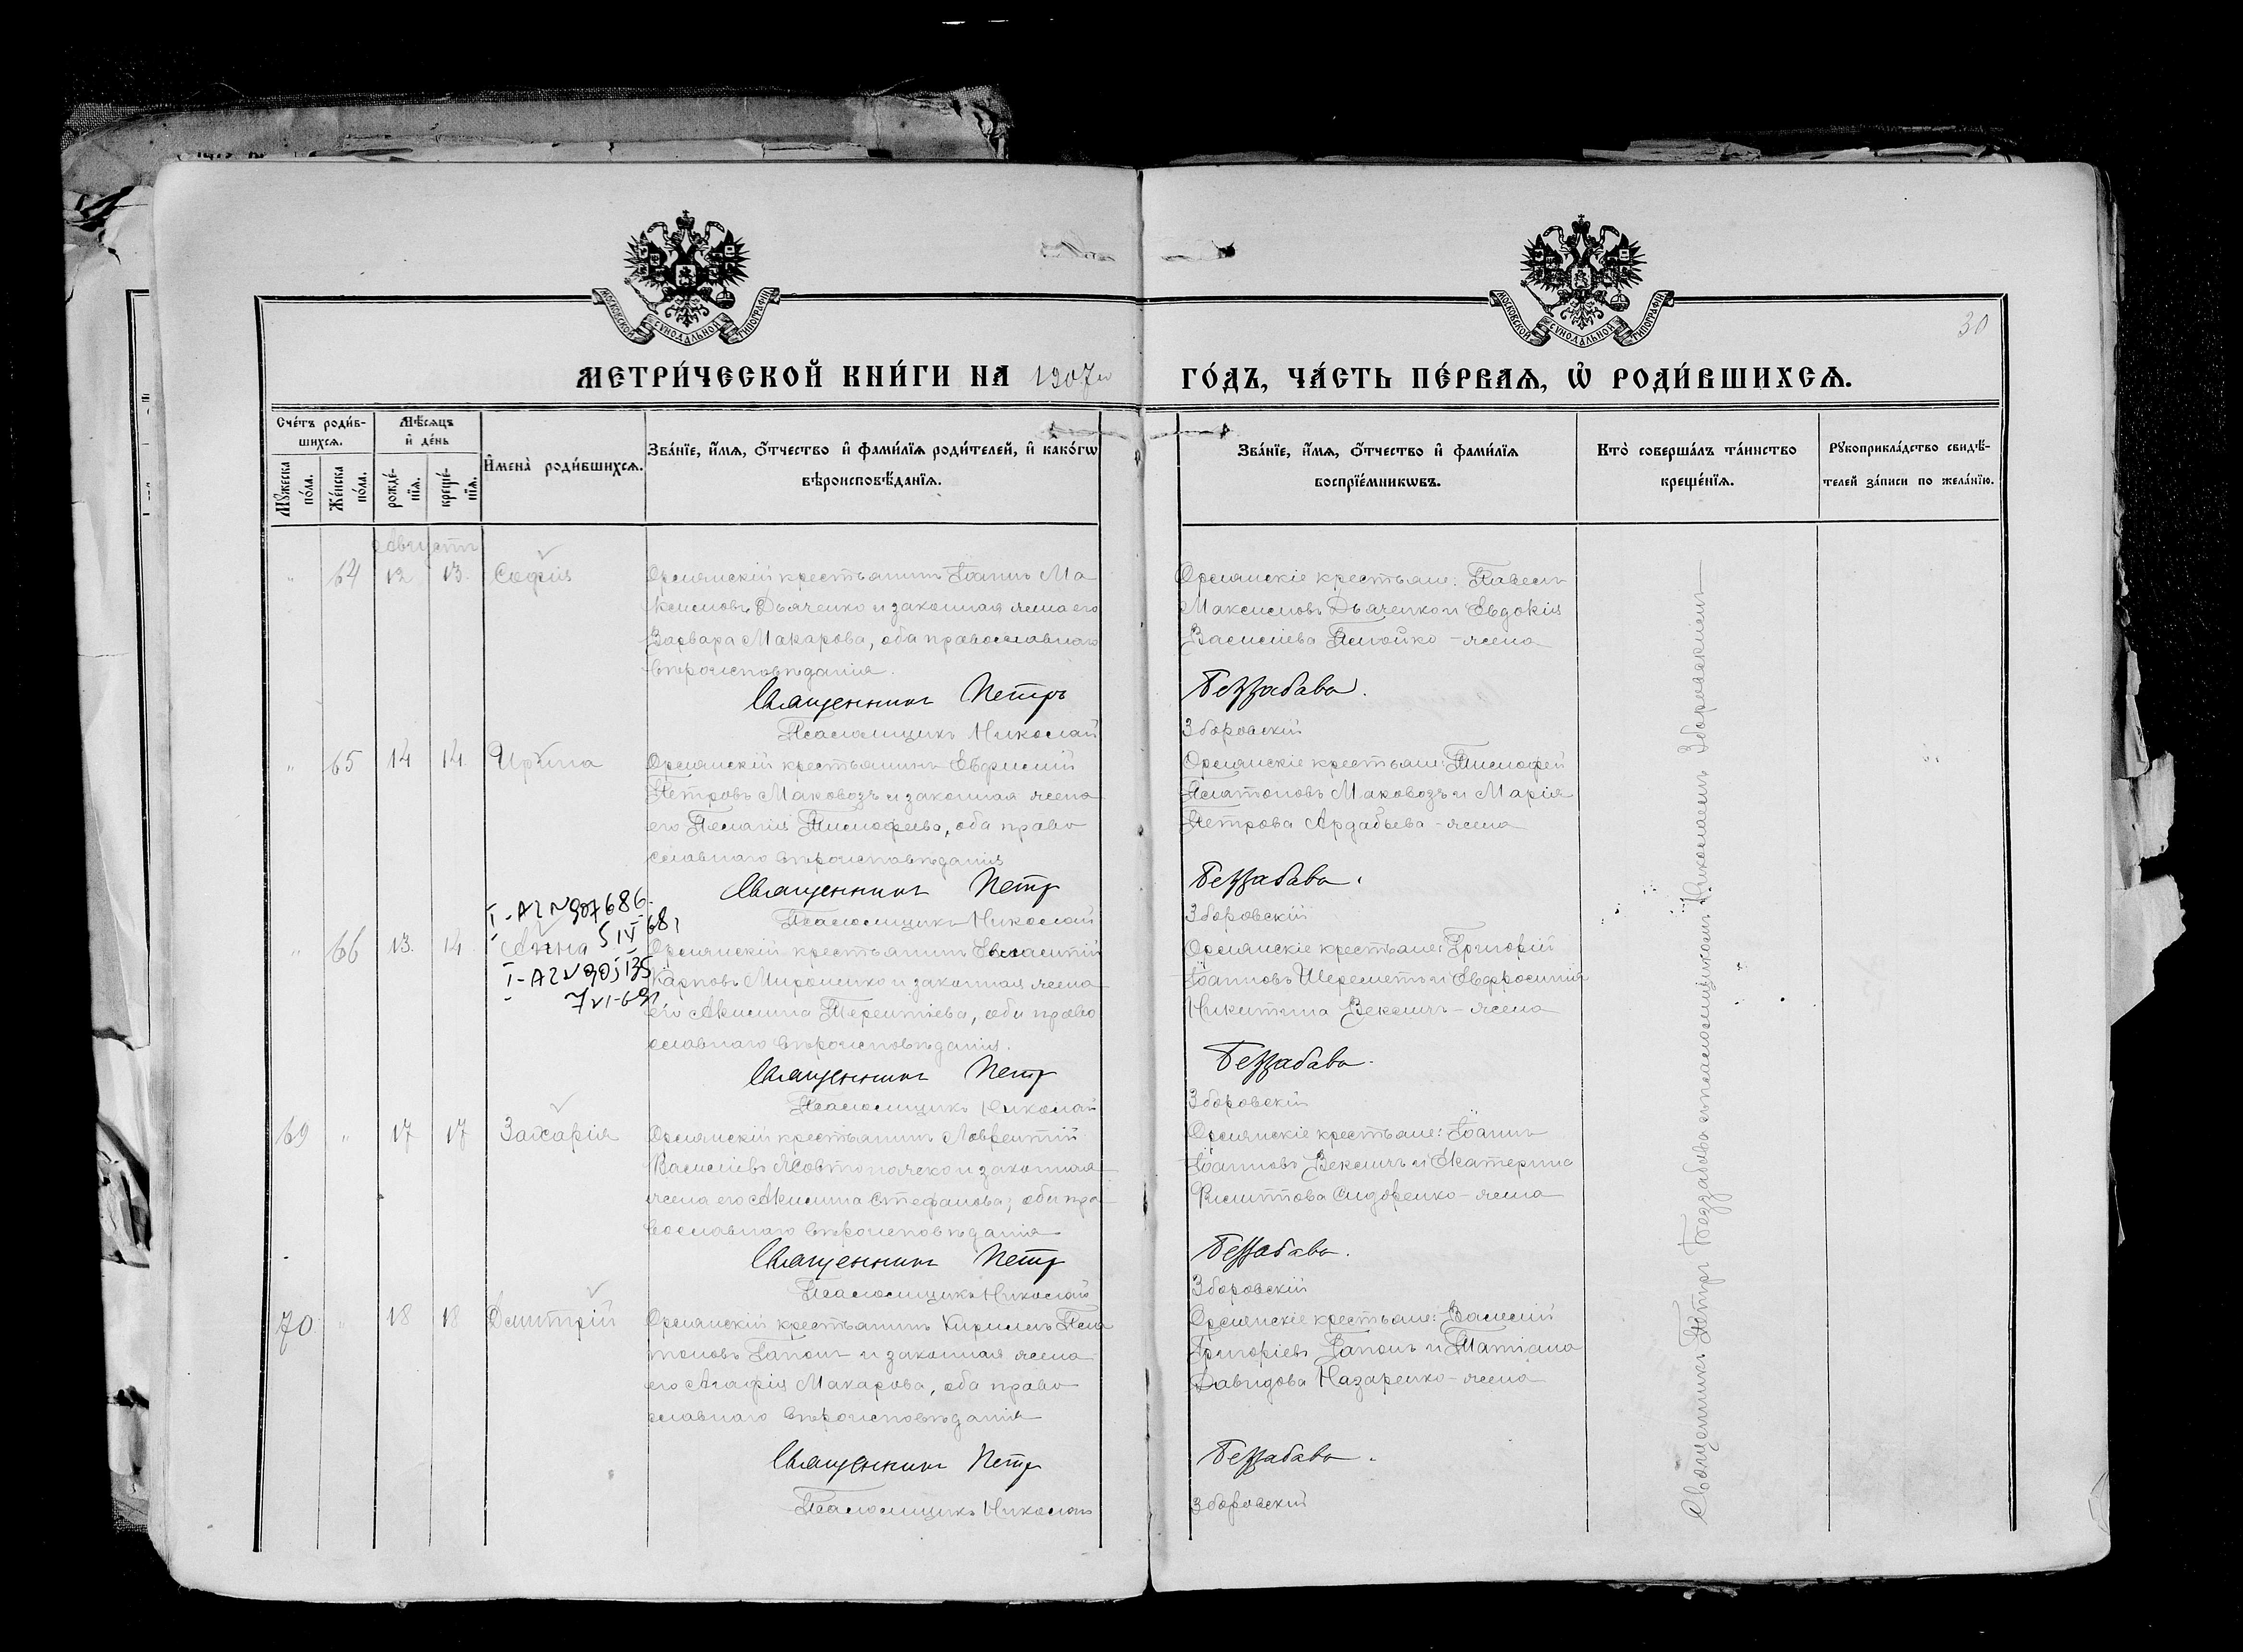 МОСКОВСКОЙ СѴНОДАЛЬНОЙ ТИПОГРАФІИ
МОСКОВСКОЙ СѴНОДАЛЬНОЙ ТИПОГРАФІИ
30
МЕТРИ́ЧЕСКОЙ КНИ́ГИ НА 1907й ГО́ДЪ, ЧА́СТЬ ПЕ́РВАЯ, Ѡ҆ РОДИ́ВШИХСЯ.
Сче́тъ роди́в-
шихся.
Мѣ́сяцъ
и҆ де́нь
Мꙋ́жеска по́ла.
Же́нска по́ла.
рожде́-
нїя.
креще́-
нїя.
И҆мена̀ роди́вшихся.
Зва́нїе, и҆́мя, ѻ҆́тчество и҆ фами́лїя роди́телей, и҆ како́гѡ
вѣроисповѣ́данїя.
Зва́нїе, и҆́мя, ѻ҆́тчество и҆ фами́лїя
воспрїе́мникѡвъ.
Кто̀ соверша́лъ та́инство
креще́нїя.
Рꙋкоприкла́дство свидѣ́-
телей за́писи по жела́нїю.
Августъ
" 64 12 13. Софія
Орлянскій крестьянинъ Іоаннъ Ма
ксимовъ Дьяченко и законная жена его
Варвара Макарова, оба православнаго
вѣроисповѣданія.
Священникъ Петръ
Псаломщикъ Николай
Орлянскіе крестьяне: Павелъ
Максимовъ Дьяченко и Евдокія
Василіева Плюйко - жена
Беззабава.
Зборовскій
" 65 14 14. Ирина
Орлянскій крестьянинъ Евфимій
Петровъ Маковозъ и законная жена
его Пелагія Тимофеева, оба право
славнаго вѣроисповѣданія
Священникъ Петр
Псаломщикъ Николай
Орлянскіе крестьяне: Тимофей
Платоновъ Маковозъ и Марія
Петрова Ардабьева - жена
Беззабава.
Зборовскій
I-АГ N 907686
5 IV 68г
I-АГ N 905135
7 VI-69г
" 66 13. 14 Анна
Орлянскій крестьянинъ
Карповъ Мироненко и законная жена
его Акилина Терентіева, оба право
славнаго вѣроисповѣданія.
Священникъ Петр
Псаломщикъ Николай
Орлянскіе крестьяне: Григорій
Іоанновъ Шереметъ и Евфросинія
Никитина Векличъ - жена
Беззабава.
Зборовскій
69 " 17 17 Захарія
Орлянскій крестьянинъ Лаврентій
Василіевъ Жовтоножко и законная
жена его Акилина Стефанова, оба пра
вославнаго вѣроисповѣданія
Священникъ Петр
Псаломщикъ Николай
Орлянскіе крестьяне: Іоаннъ
Іоанновъ Векличъ и Екатерина
Филиппова Сидоренко - жена
Беззабава.
Зборовскій
70 " 18 18 Димитрій
Орлянскій крестьянинъ Кириллъ Пла
тоновъ Гапонъ и законная жена
его Агафія Макарова, оба право
славнаго вѣроисповѣданія
Священникъ Петр
Псаломщикъ Николай
Орлянскіе крестьяне: Василій
Григоріевъ Гапонъ и Татіана
Давидова Назаренко - жена
Беззабава.
Зборовскій
Священникъ Петръ Беззабава съ псаломщикомъ Николаемъ Зборовскимъ